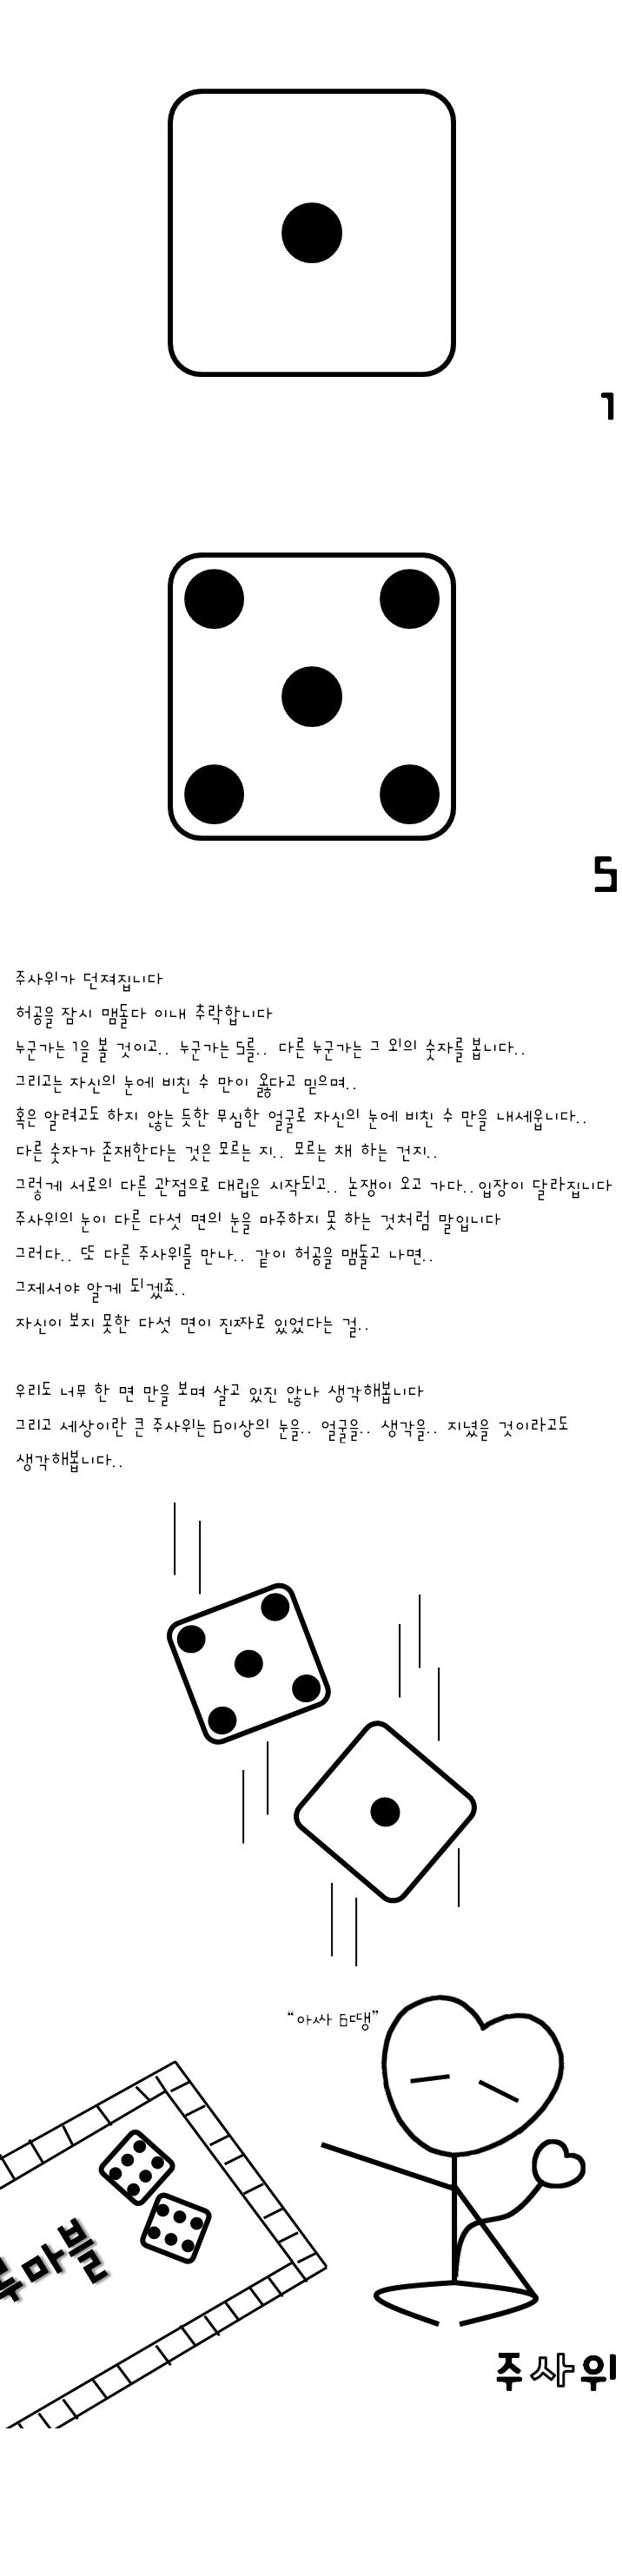 1
5
주사위가 던져집니다
허공을 잠시 맴돌다 이내 추락합니다
누군가는 1을 볼 것이고.. 누군가는 5를.. 다른 누군가는 그 외의 숫자를 봅니다..
그리고는 자신의 눈에 비친 수 만이 옳다고 믿으며..
혹은 알려고도 하지 않는 듯한 무심한 얼굴로 자신의 눈에 비친 수 만을 내세웁니다..
다른 숫자가 존재한다는 것은 모르는 지.. 모르는 채 하는 건지..
그렇게 서로의 다른 관점으로 대립은 시작되고.. 논쟁이 오고 가다.. 입장이 달라집니다
주사위의 눈이 다른 다섯 면의 눈을 마주하지 못 하는 것처럼 말입니다
그러다.. 또 다른 주사위를 만나.. 같이 허공을 맴돌고 나면..
그제서야 알게 되겠죠..
자신이 보지 못한 다섯 면이 진짜로 있었다는 걸..
우리도 너무 한 면 만을 보며 살고 있진 않나 생각해봅니다
그리고 세상이란 큰 주사위는 6이상의 눈을.. 얼굴을.. 생각을.. 지녔을 것이라고도
생각해봅니다..
“아싸 6땡”
루마블
주사위